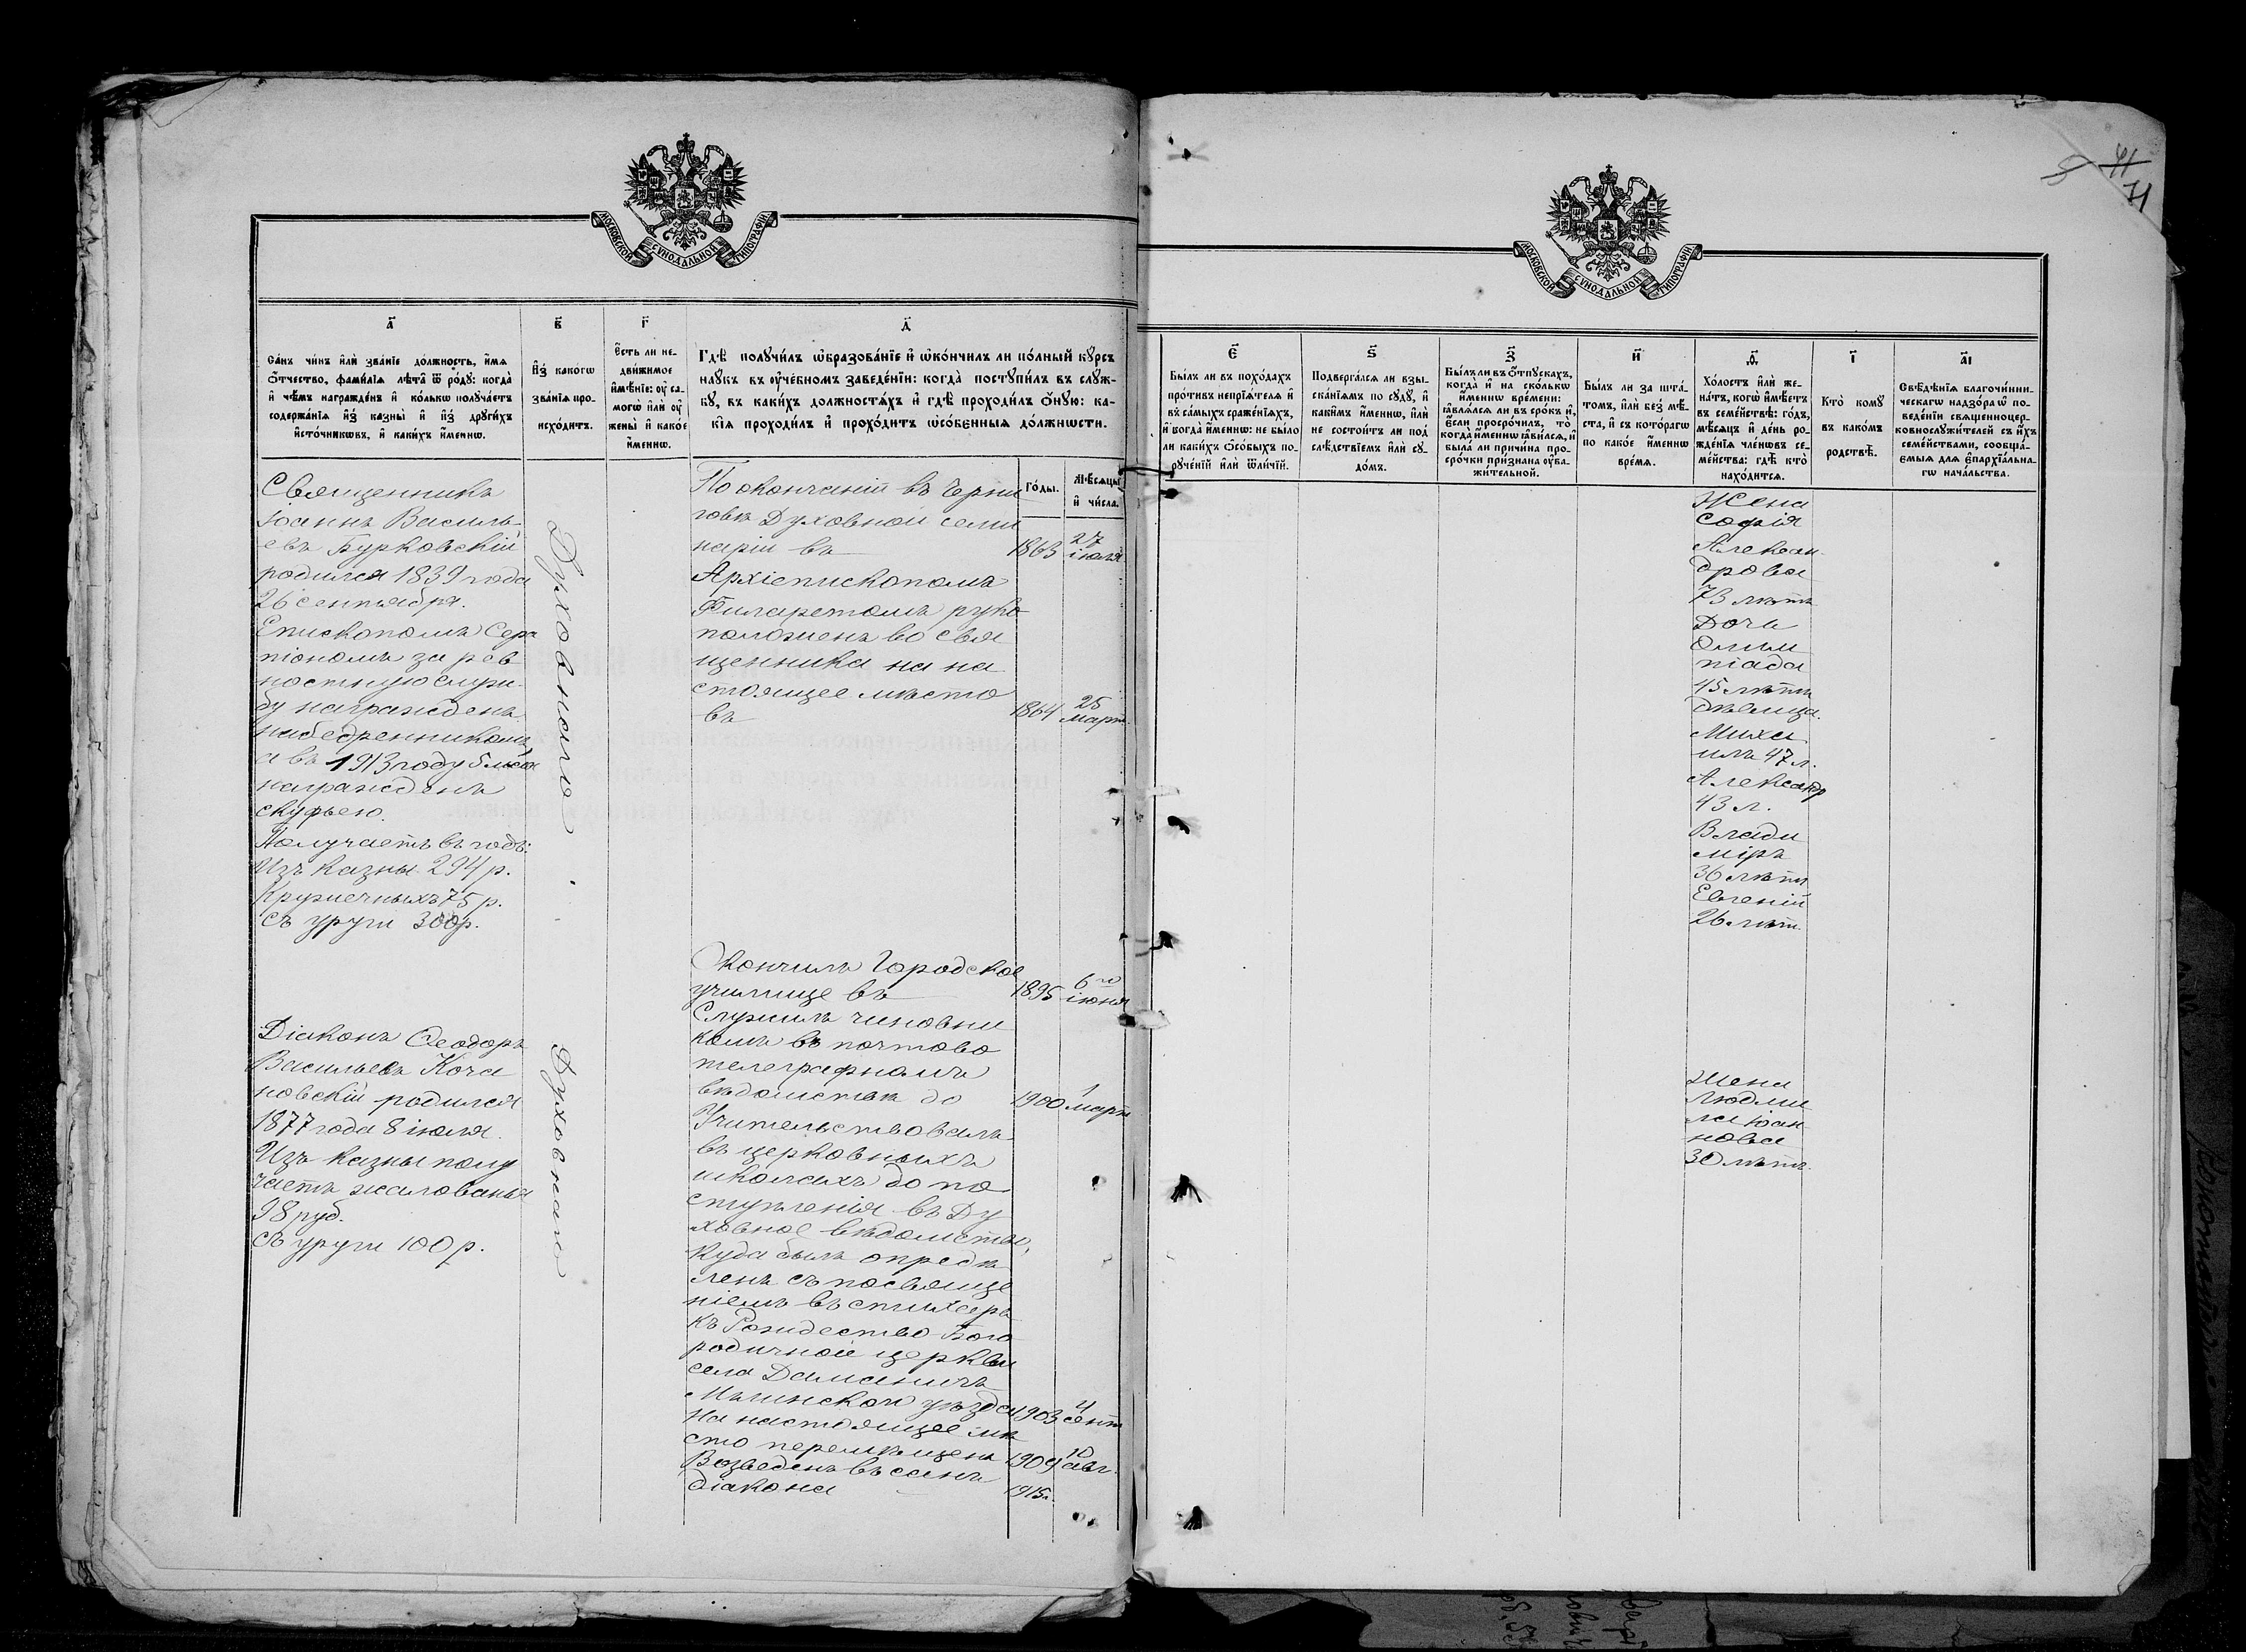 МОСКОВСКОЙ СУНОДАЛЬНОЙ ТИПОГРАФІИ
а҃
Са́нъ чи́нъ и҆лѝ зва́нїе до́лжность, и҆́мѧ
ѻ҆́тчество, фамилїѧ лѣта̀ ѿ ро́дꙋ: когда̀
и҆ чѣ́мъ награжде́нъ и҆ ко́лькѡ получа́етъ
содержа́нїѧ и҆з̾ казны̀ и҆ и҆з̾ дрꙋги́хъ
и҆сто́чникѡвъ, и҆ каки́хъ и҆́меннѡ.
в҃
И҆з̾ како́гѡ
зва́нїѧ про-
исхо́дитъ.
г҃
Е҆́сть ли не-
дви́жимое
и҆мѣ́нїе: оу҆ са-
могѡ̀ и҆лѝ оу҆
жены̀ и҆ како́е
и҆́меннѡ.
д҃
Гдѣ̀ получи́лъ ѡ҆бразова́нїе и҆ ѡ҆ко́нчилъ ли по́лный кꙋ́рсъ
наꙋ́къ въ оу҆че́бномъ заведе́нїи: когда̀ постꙋпи́лъ въ слꙋ́ж-
бꙋ, въ каки́хъ должностѧ́хъ и҆ гдѣ̀ проходи́лъ ѻ҆́нꙋю: ка-
кі́ѧ проходи́лъ и҆ прохо́дитъ ѡ҆со́бенныѧ до́лжнѡсти.
Го́ды.
Мѣ́сѧцы
и҆ чи́сла.
Священникъ
Іоаннъ Василь-
евъ Бурковскій
родился 1839 года
26 сентября.
Епископомъ Сера
піономъ за рев
ностную служ-
бу награжденъ
набедренникомъ,
а въ 1913 году былъ
награжденъ
скуфьею.
Получаетъ въ годъ:
Изъ казны 294 р.
Кружечныхъ 75 р.
Съ руги 300 р.
Духовнаго
По окончаніи въ Черни
говѣ Духовной семи
наріи въ 1863 27 іюля
Архіепископомъ
Филаретомъ руко
положенъ во свя
щенника на на
стоящее мѣсто
въ 1864 25 март.
Діаконъ Ѳеодоръ
Васильевъ Коча
новскій родился
1877 года 8 іюля.
Изъ казны полу
чаетъ жалованья
98 руб.
Съ руги 100 р.
Духовнаго
Окончилъ Городское
училище въ 1895 6го іюня
Служилъ чиновни
комъ въ почтово
телеграфномъ
вѣдомствѣ до 1900 1 марта
Учительствовалъ
въ церковныхъ
школахъ до по
ступленія въ Ду
ховное вѣдомство,
куда былъ опредѣ
ленъ съ посвяще
ніемъ въ стихарь
къ Рождество-Бого
родичной церкви
села
Мглинскаго уѣзда 1903 4 сент
На настоящее мѣ
сто перемѣщенъ 1909 10 авг.
Возведенъ въ санъ
діакона 1915 г.
41
71
МОСКОВСКОЙ СУНОДАЛЬНОЙ ТИПОГРАФІИ
є҃
Бы́лъ ли въ похо́дахъ
про́тивъ непрїѧ́телѧ и҆
въ са́мыхъ сраже́нїѧхъ,
и҆ когда̀ и҆́меннѡ: не бы́ло
ли каки́хъ ѻ҆со́быхъ по-
рꙋче́нїй и҆лѝ ѿли́чїй.
ѕ҃
Подверга́лсѧ ли взы-
ска́нїѧмъ по сꙋдꙋ̀, и҆
каки́мъ и҆́меннѡ, и҆лѝ
не состои́тъ ли под̾
слѣ́дствїемъ и҆лѝ сꙋ-
до́мъ.
з҃
Бы́лъ ли въ ѻ҆́тпꙋскахъ,
когда̀ и҆ на ско́лькѡ
и҆́меннѡ вре́мени:
ꙗ҆влѧ́лсѧ ли въ сро́къ и҆,
е҆́сли просро́чилъ, то̀
когда̀ и҆́меннѡ ꙗ҆ви́лсѧ, и҆
была̀ ли причи́на про-
сро́чки при́знана оу҆ва-
жи́тельной.
и҃
Бы́лъ ли за шта́-
томъ, и҆лѝ без̾ мѣ́-
ста, и҆ съ кото́рагѡ
по како́е и҆́меннѡ
вре́мѧ.
ѳ҃
Хо́лостъ и҆лѝ же-
на́тъ, когѡ̀ и҆мѣ́етъ
въ семе́йствѣ: го́дъ,
мѣ́сѧцъ и҆ де́нь ро-
жде́нїѧ чле́нѡвъ се-
ме́йства: гдѣ̀ кто̀
нахо́дитсѧ.
і҃
Кто̀ комꙋ̀
въ како́мъ
родствѣ̀.
а҃і
Свѣ́дѣнїѧ благочи́нни-
ческагѡ надзо́ра ѡ҆ по-
веде́нїи свѧщенноцер-
ковнослꙋжи́телей съ и҆́хъ
семе́йствами, сообща́-
емыѧ для є҆парха́льна-
гѡ нача́льства.
Жена
Софія
Алексан-
дровна
73 лѣтъ
Дочь
Олим
піада
45 лѣтъ
дѣвица.
Миха
илъ 47 л.
Александр
43 л.
Влади
міръ
36 лѣтъ
Евгеній
26 лѣт.
Жена
Людми
ла Іоан
новна
30 лѣтъ.